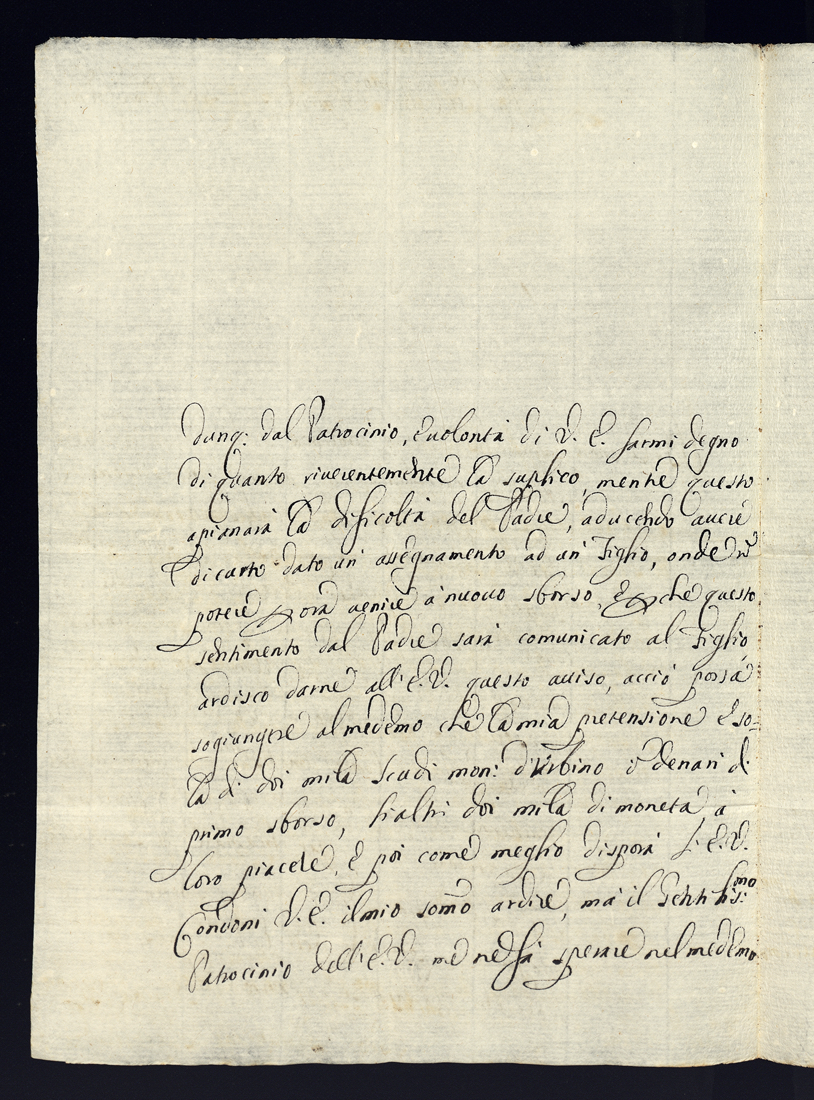 dunq: dal Patrocinio, e uolontà di V. E. farmi degno
di quanto riuerentemente la suplico, mentre questo
apianarà la dificoltà del Padre, aducendo auere
di curto dato un' assegnamento ad un' Figlio, onde nõ
potere per ora uenire a nuouo sborso, e perche questo
sentimento dal Padre sarà comunicato al Figlio,
ardisco darne all' E. V. questo auiso, acciò possa
sogiungere al medemo che la mia pretensione è so=
la di doi mila scudi mon: d'Urbino in denari di
primo sborso, gl'altri doi mila di moneta, à
loro piacere, e poi come meglio disporà l'E. V.
Condoni V. E. il mio somo ardire, mà il Gentilis:mo
Patrocinio dell' E. V. me ne fà sperare nel medemo